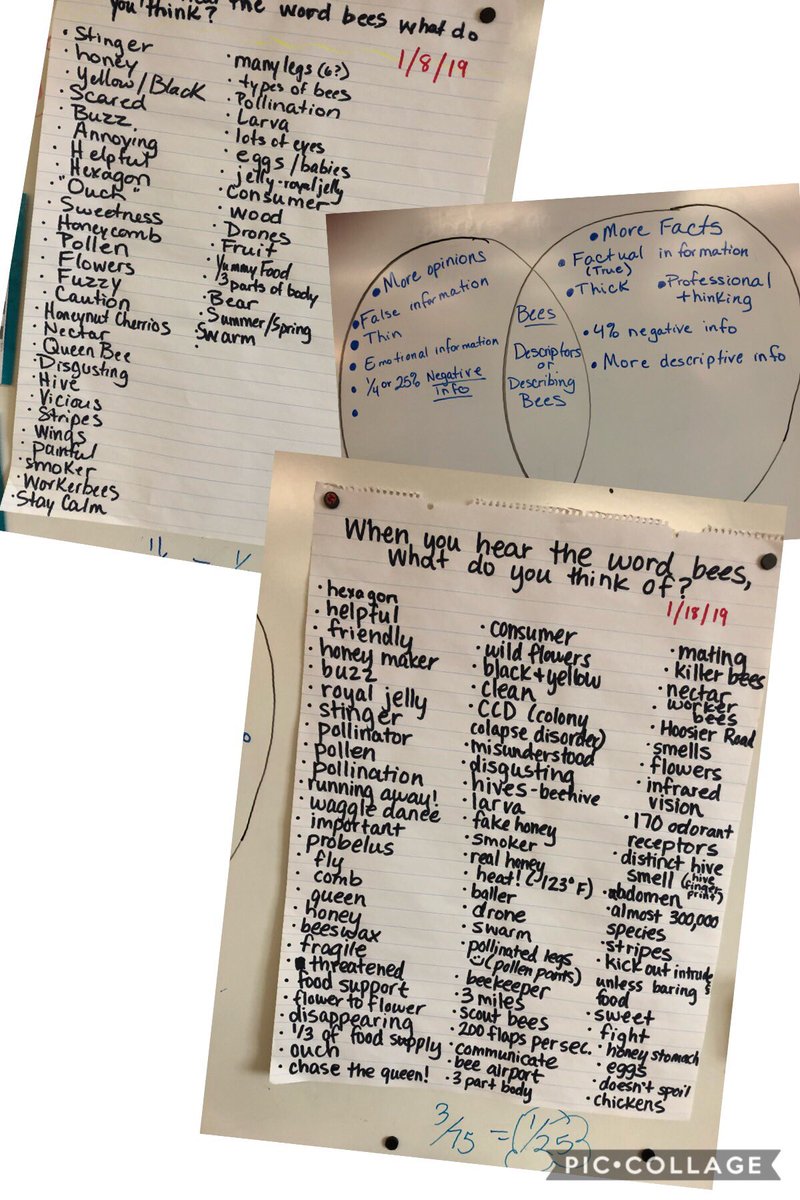 the word bees what do
you think?
1/8/19
• Stinger
• honey
• Yellow/Black
• Scared
• Buzz
• Annoying
• Helpful
• Hexagon
• "Ouch"
• Sweetness
• Honeycomb
• Pollen
• Flowers
• Fuzzy
• Caution
• Honeynut Cherrios
• Nectar
• Queen Bee
• Disgusting
• Hive
• Vicious
• Stripes
• Wings
• Painful
• smoker
• Workerbees
• Stay Calm
• many legs (6?)
• types of bees
• Pollination
• Larva
• lots of eyes
• eggs/babies
• jelly-royal jelly
• Consumer
• Wood
• Drones
• Fruit
• Yummy Food
• 3 parts of body
• Bear
• Summer/Spring
• Swarm
• More opinions
• False information
• Thin
• Emotional information
• 1/4 or 25% Negative
info
Bees
Descriptors
or
Describing
Bees
• More Facts
• Factual information
(True)
• Thick
• Professional
thinking
• 4% negative info
• More descriptive info
When you hear the word bees,
What do you think of?
1/18/19
• hexagon
• helpful
• friendly
• honey maker
• buzz
• royal jelly
• stinger
• pollinator
• pollen
• pollination
• running away!
• waggle dance
• important
• probelus
• fly
• comb
• queen
• honey
• beeswax
• fragile
• threatened
• food support
• flower to flower
• disappearing
• 1/3 of food supply
• ouch
• chase the queen!
• consumer
• wild flowers
• black + yellow
• clean
• CCD (colony
colapse disorder)
• misunderstood
• disgusting
• hives-beehive
• larva
• fake honey
• smoker
• real honey
• heat! (123°F)
• baller
• drone
• swarm
• pollinated legs
(pollen pants)
• beekeeper
• 3 miles
• scout bees
• 200 flaps per sec.
• communicate
• bee airport
• 3 part body
• mating
• killer bees
• nectar
• worker
bees
• Hoosier Road
• smells
• flowers
• infrared
vision
• 170 odorant
receptors
• distinct hive
smell (hive
finger
print)
• abdomen
• almost 300,000
species
• stripes
• kick out
unless baring
food
• sweet
• fight
• honey stomach
• eggs
• doesn't spoil
• chickens
3/75 = 1/25
PIC•COLLAGE